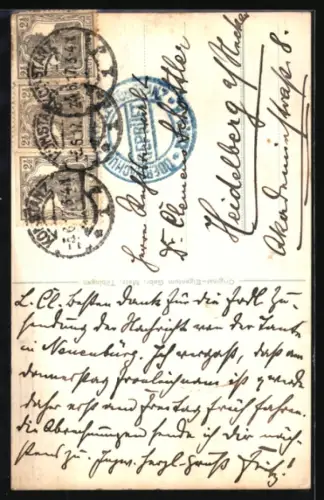 2½
2½
2½
KONSTANZ
-5.6.17. 3-4 N
Herrn Rechtsanwalt
Dr. Clemens Schottler
Heidelberg a/Neckar
Akademiestraße 8.
Original-Eigentum Gebr. Metz, Tübingen
L. Cl. Besten Dank für die frdl. Zu-
sendung der Nachricht von der Tante
in Neuenbürg. Ich vergaß, daß am
Donnerstag Fronleichnam ist & werde
daher erst am Freitag früh fahren.
Die Abrechnungen sende ich dir näch-
stens zu. Inzw. herzl. Gruß Fritz!